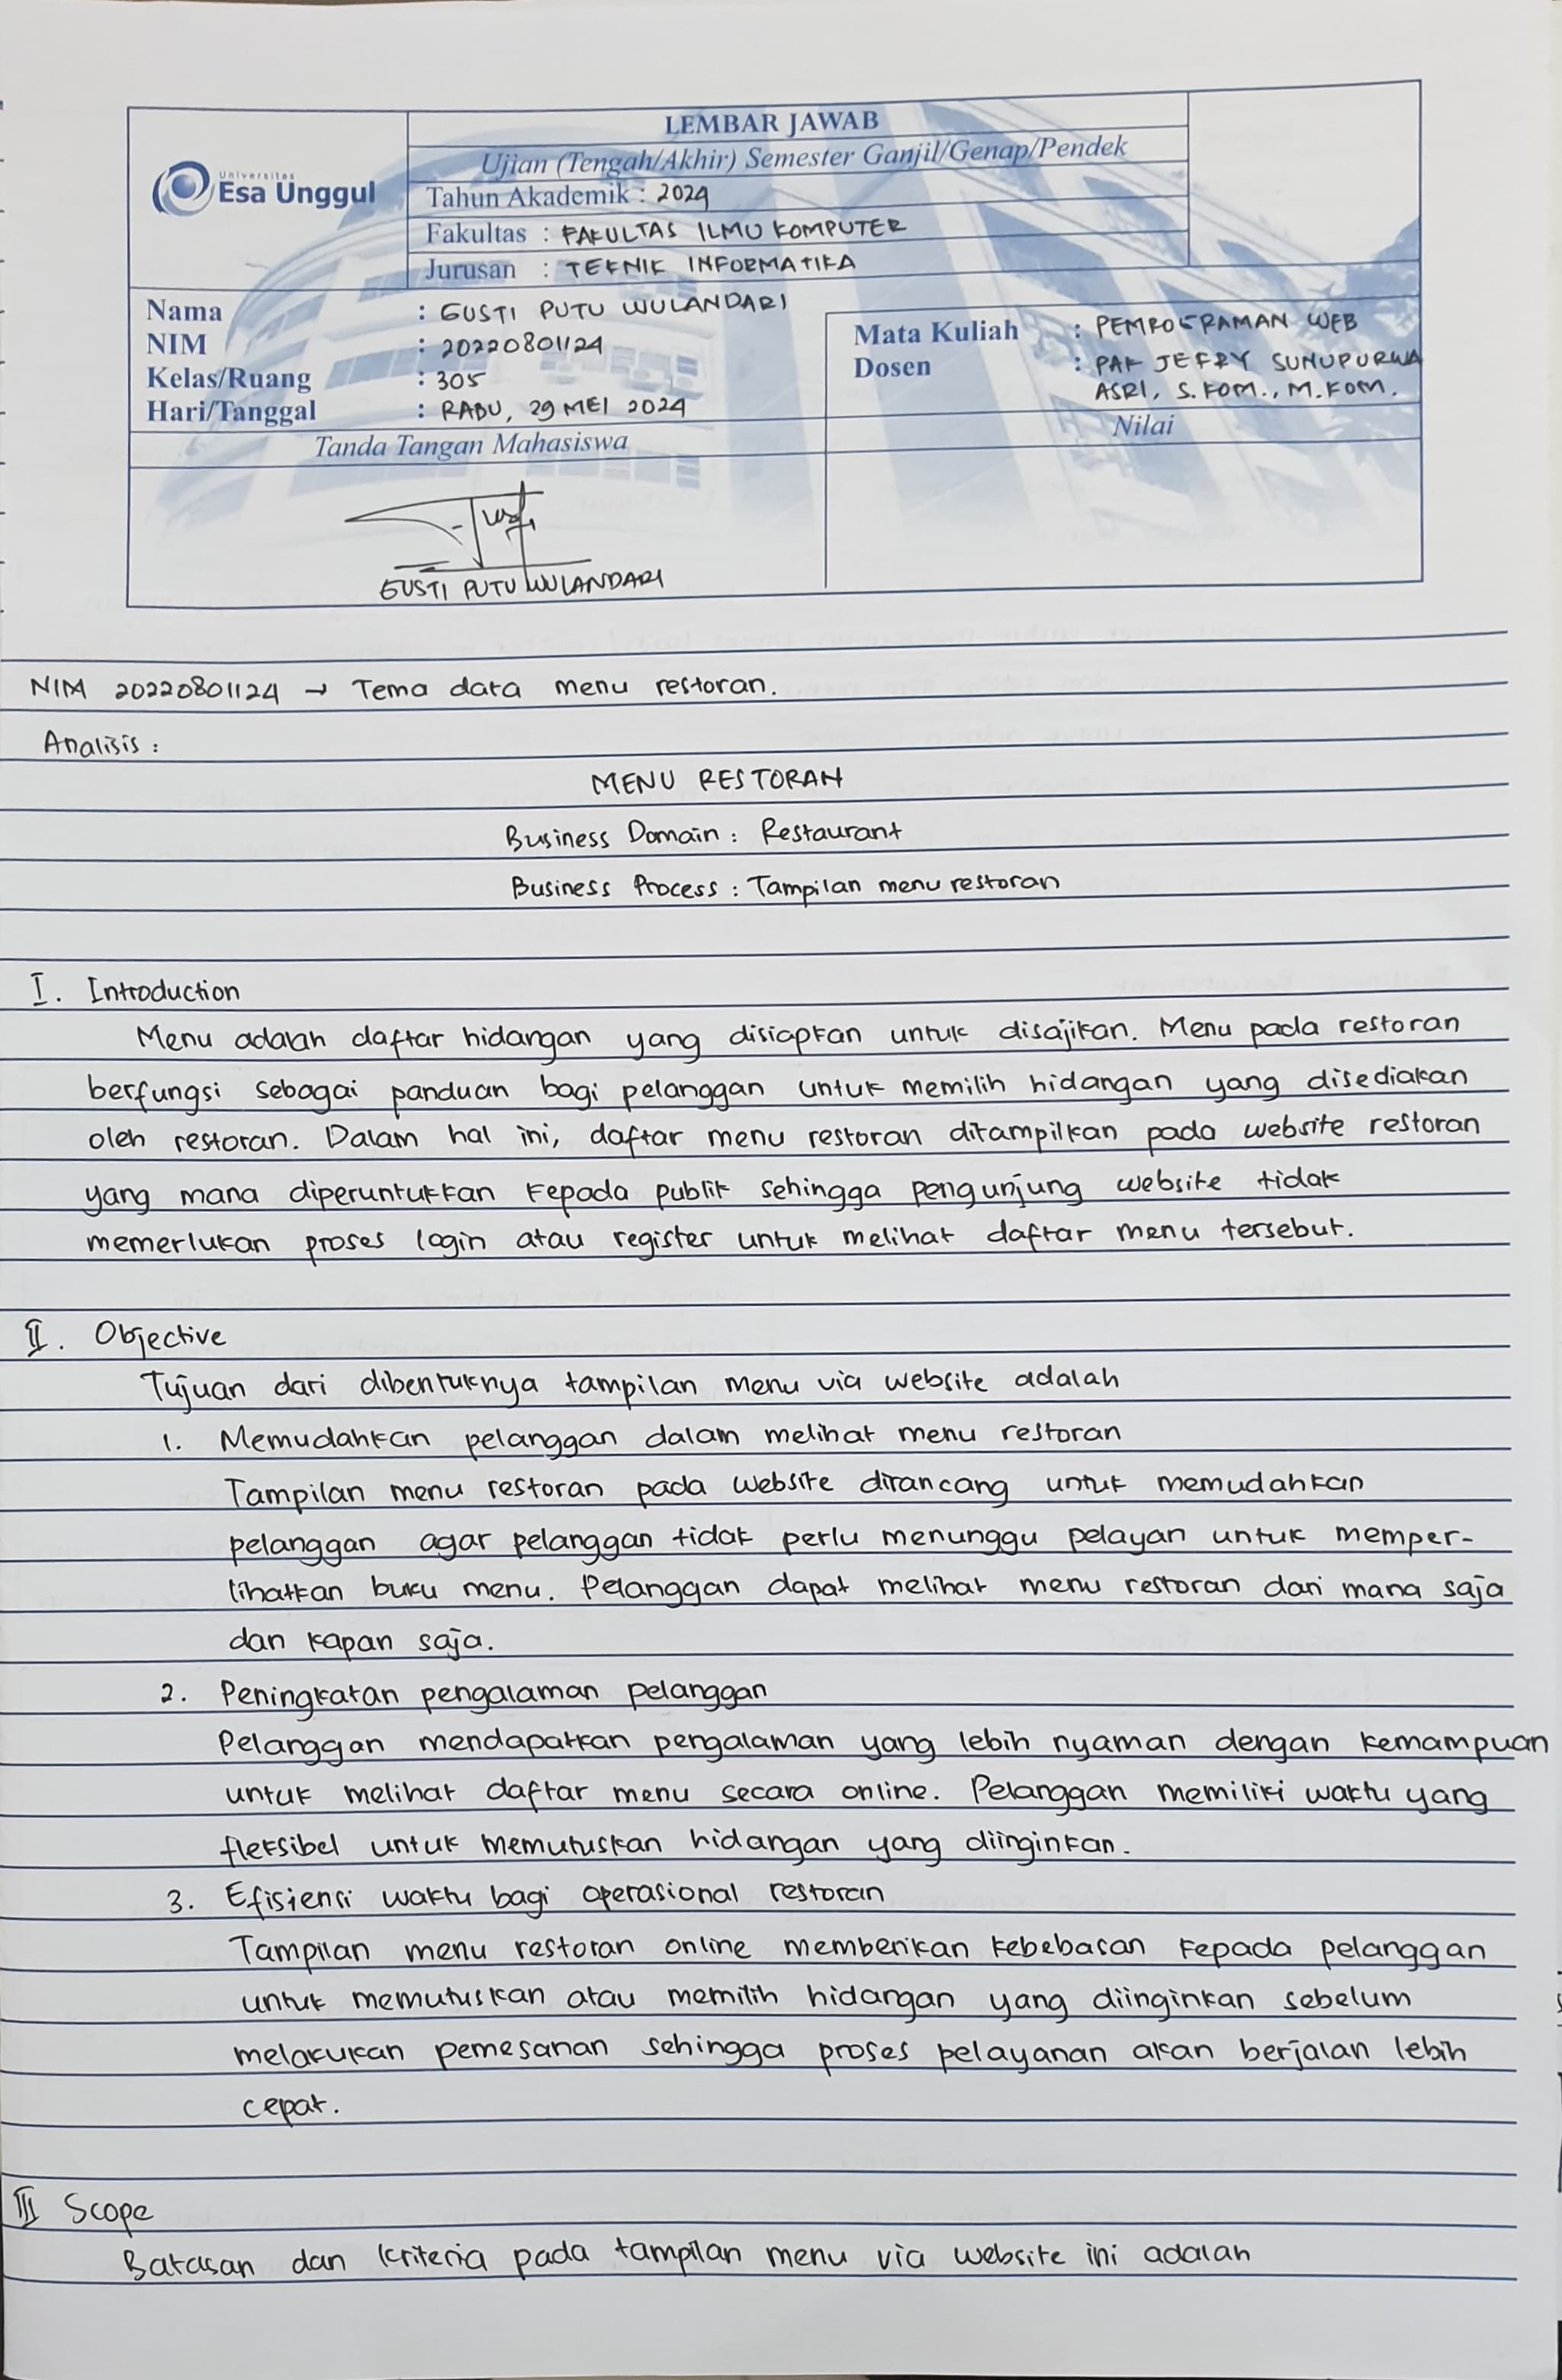 LEMBAR JAWAB
Universitas
Esa Unggul
Ujian (Tengah/Akhir) Semester Ganjil/Genap/Pendek
Tahun Akademik : 2024
Fakultas : FAKULTAS ILMU KOMPUTER
Jurusan : TEKNIK INFORMATIKA
Nama : GUSTI PUTU WULANDARI
NIM : 20220801124
Kelas/Ruang : 305
Hari/Tanggal : RABU, 29 MEI 2024
Mata Kuliah : PEMROGRAMAN WEB
Dosen : PAK JEFRY SUNUPURWA
ASRI, S.KOM., M.KOM.
Tanda Tangan Mahasiswa
Nilai
GUSTI PUTU WULANDARI
NIM 20220801124 → Tema data menu restoran.
Analisis :
MENU RESTORAN
Business Domain : Restaurant
Business Process : Tampilan menu restoran
I. Introduction
Menu adalah daftar hidangan yang disiapkan untuk disajikan. Menu pada restoran
berfungsi sebagai panduan bagi pelanggan untuk memilih hidangan yang disediakan
oleh restoran. Dalam hal ini, daftar menu restoran ditampilkan pada website restoran
yang mana diperuntukkan kepada publik sehingga pengunjung website tidak
memerlukan proses login atau register untuk melihat daftar menu tersebut.
II. Objective
Tujuan dari dibentuknya tampilan menu via website adalah
1. Memudahkan pelanggan dalam melihat menu restoran
Tampilan menu restoran pada website dirancang untuk memudahkan
pelanggan agar pelanggan tidak perlu menunggu pelayan untuk memper-
lihatkan buku menu. Pelanggan dapat melihat menu restoran dari mana saja
dan kapan saja.
2. Peningkatan pengalaman pelanggan
Pelanggan mendapatkan pengalaman yang lebih nyaman dengan kemampuan
untuk melihat daftar menu secara online. Pelanggan memiliki waktu yang
fleksibel untuk memutuskan hidangan yang diinginkan.
3. Efisiensi waktu bagi operasional restoran
Tampilan menu restoran online memberikan kebebasan kepada pelanggan
untuk memutuskan atau memilih hidangan yang diinginkan sebelum
melakukan pemesanan sehingga proses pelayanan akan berjalan lebih
cepat.
III Scope
Batasan dan kriteria pada tampilan menu via website ini adalah